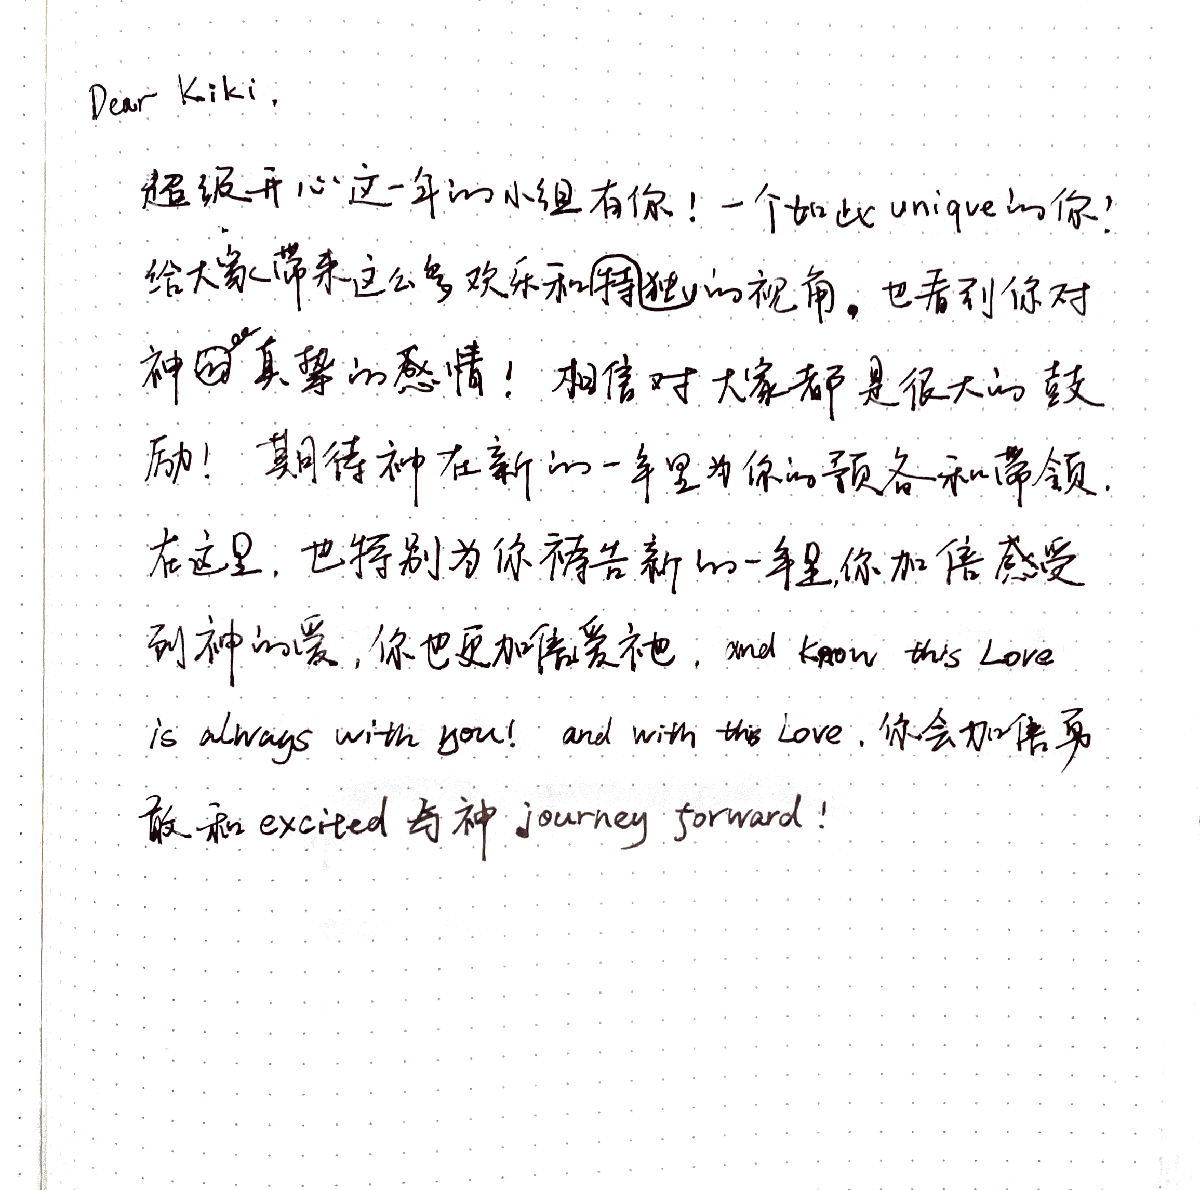 Dear Kiki,
超级开心这一年的小组有你！一个如此unique的你！
给大家带来这么多欢乐和特独的视角。也看到你对
神的真挚的感情！相信对大家都是很大的鼓
励！期待神在新的一年里为你的预备和带领.
在这里,也特别为你祷告新的一年里,你加倍感受
到神的爱,你也更加倍爱祂, and know this Love
is always with you! and with this Love,你会加倍勇
敢和excited与神 journey forward!